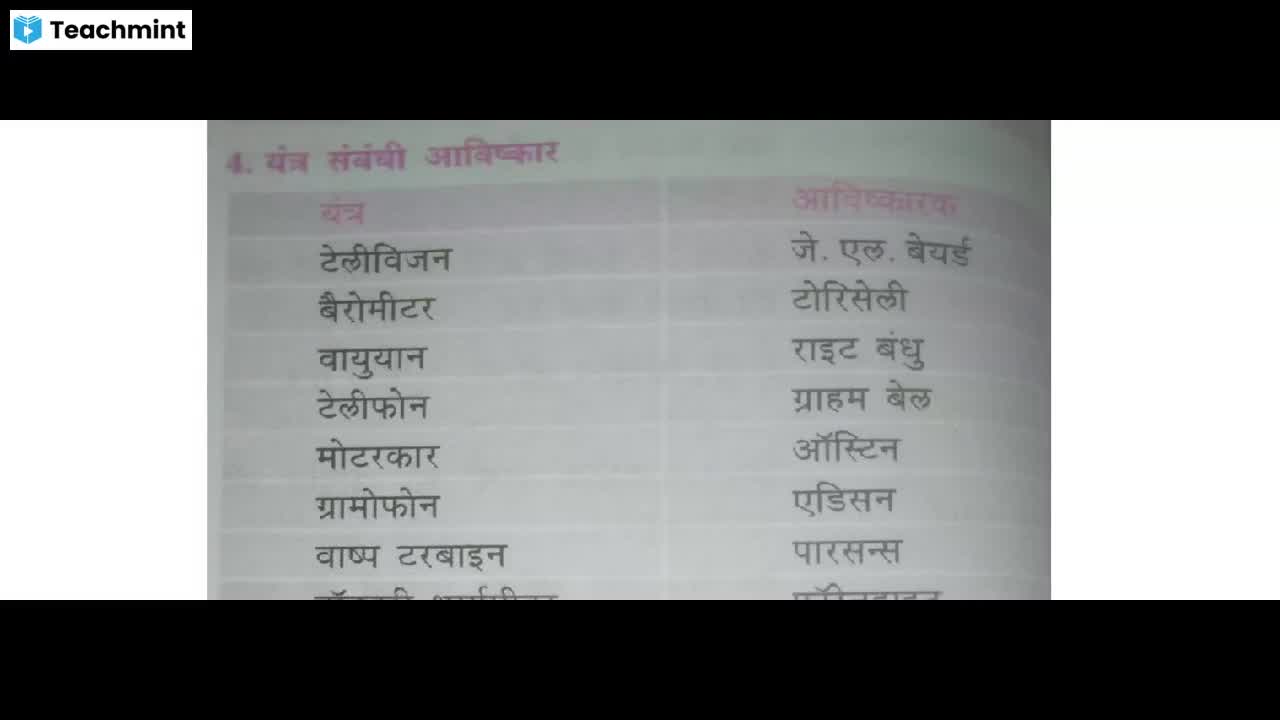 Teachmint
4. यंत्र संबंधी आविष्कार
यंत्र आविष्कारक
टेलीविजन जे. एल. बेयर्ड
बैरोमीटर टोरिसेली
वायुयान राइट बंधु
टेलीफोन ग्राहम बेल
मोटरकार ऑस्टिन
ग्रामोफोन एडिसन
वाष्प टरबाइन पारसन्स